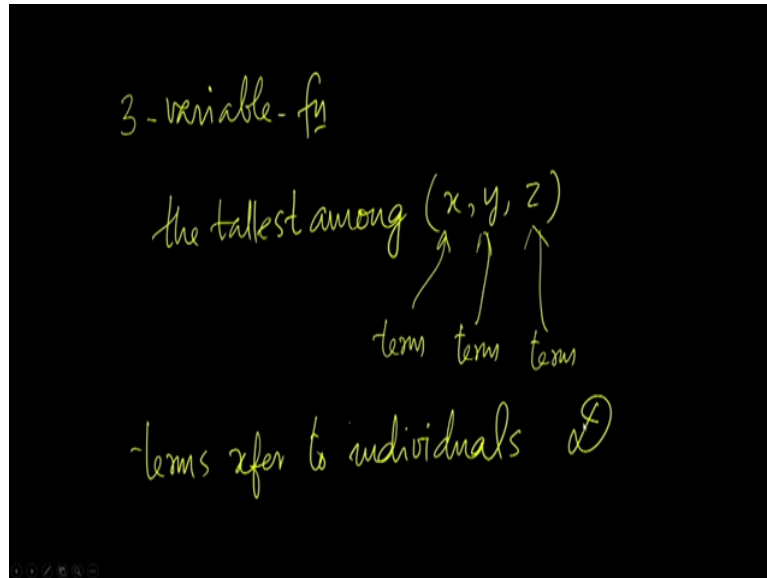 3-variable-fn
the tallest among (x, y, z)
term term term
terms refer to individuals D